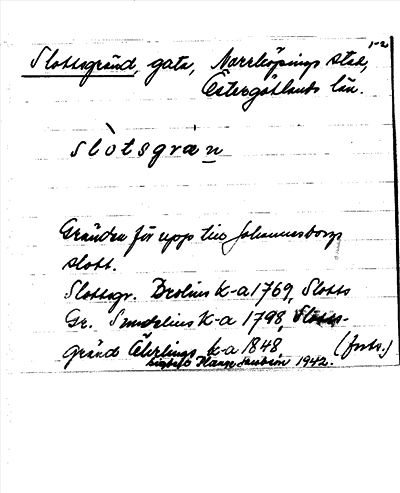 1-2
Slottsgränd, gata, Norrköpings stad,
Östergötlands län.
slòtsgræn
Gränden för upp till Johannesborgs
slott.
Slottsgr. Brolins K-a 1769, Slotts
Gr. Smidelius K-a 1798, Slotts-
gränd Öhrlings k-a 1848 (forts.)
1942.